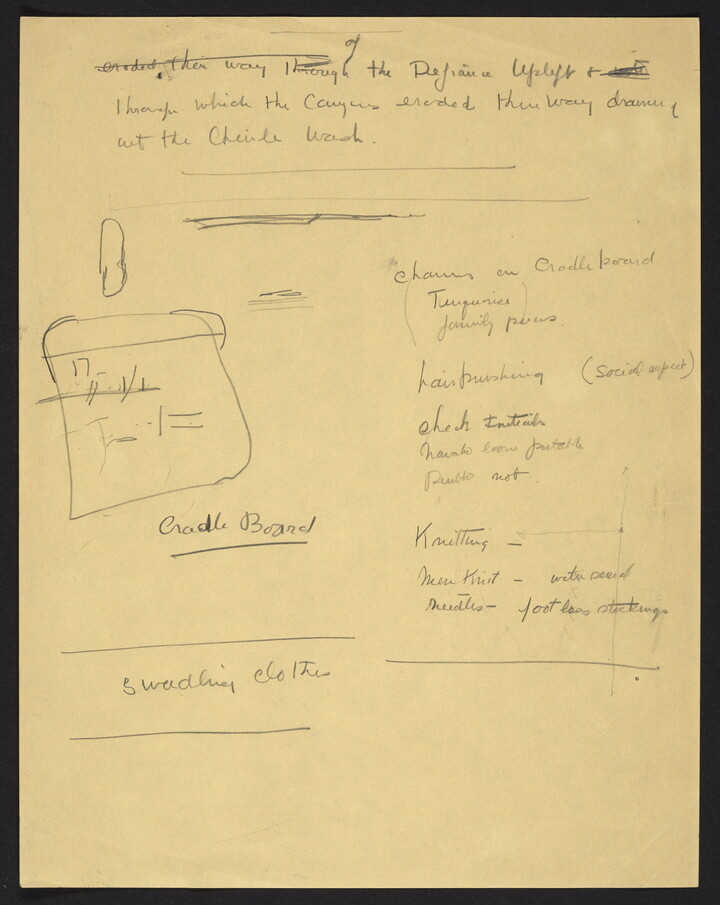 of
eroded their way through the Defiance Uplift &
through which the Canyons eroded their way draining
out the Chinle Wash.
Charms on Cradle board
(Turquoise)
family pieces.
hairbrushing (social aspect)
check Initials
Navaho loom portable
Pueblo not.
Knitting —
Men Knit — with several
needles — footless stockings
Cradle Board
Swadling clothes